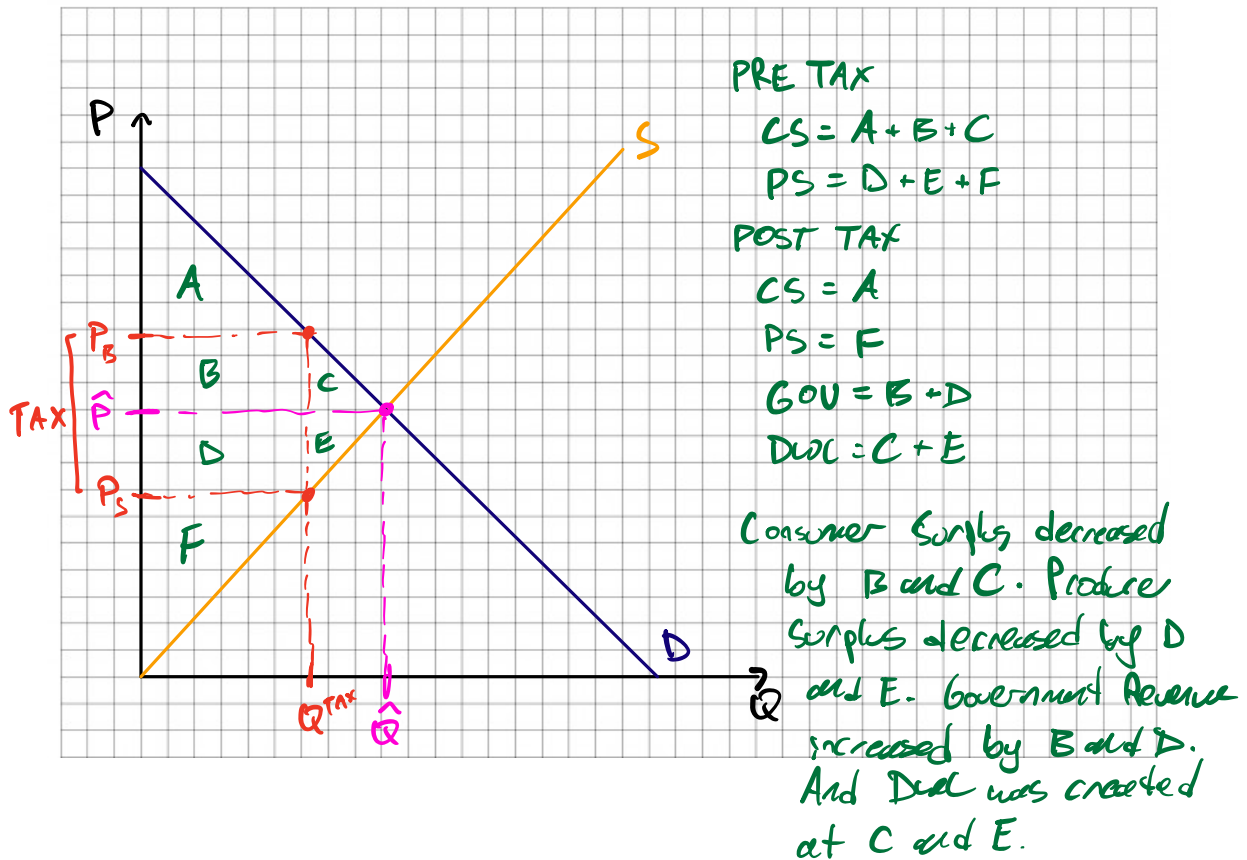 P
S
A
P_B
B
C
TAX
P̂
D
E
P_S
F
D
Q
Q^TAX
Q̂
PRE TAX
CS = A + B + C
PS = D + E + F
POST TAX
CS = A
PS = F
GOV = B + D
DWL = C + E
Consumer Surplus decreased
by B and C. Produce
Surplus decreased by D
and E. Government Revenue
increased by B and D.
And DWL was created
at C and E.